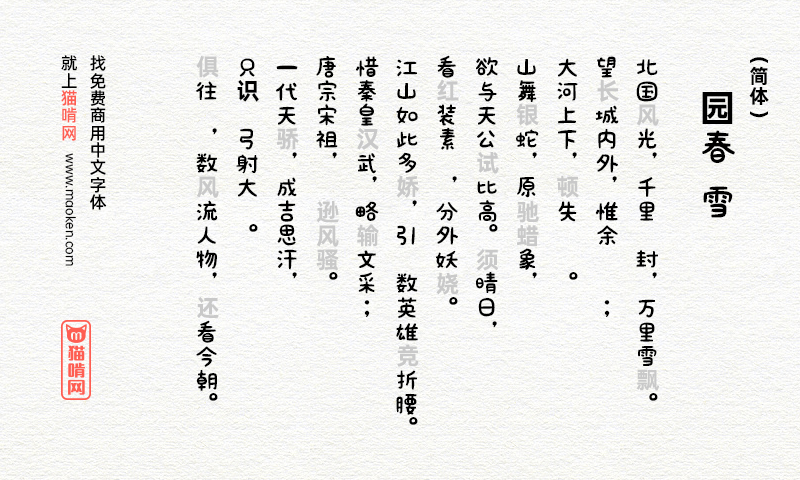 (简体)
园春 雪
北国风光，千里 封，万里雪飘。
望长城内外，惟余 ；
大河上下，顿失 。
山舞银蛇，原驰蜡象，
欲与天公试比高。须晴日，
看红装素 ，分外妖娆。
江山如此多娇，引 数英雄竞折腰。
惜秦皇汉武，略输文采；
唐宗宋祖， 逊风骚。
一代天骄，成吉思汗，
只识 弓射大 。
俱往 ，数风流人物，还看今朝。
找免费商用中文字体
就上猫啃网 www.maoken.com
猫啃网